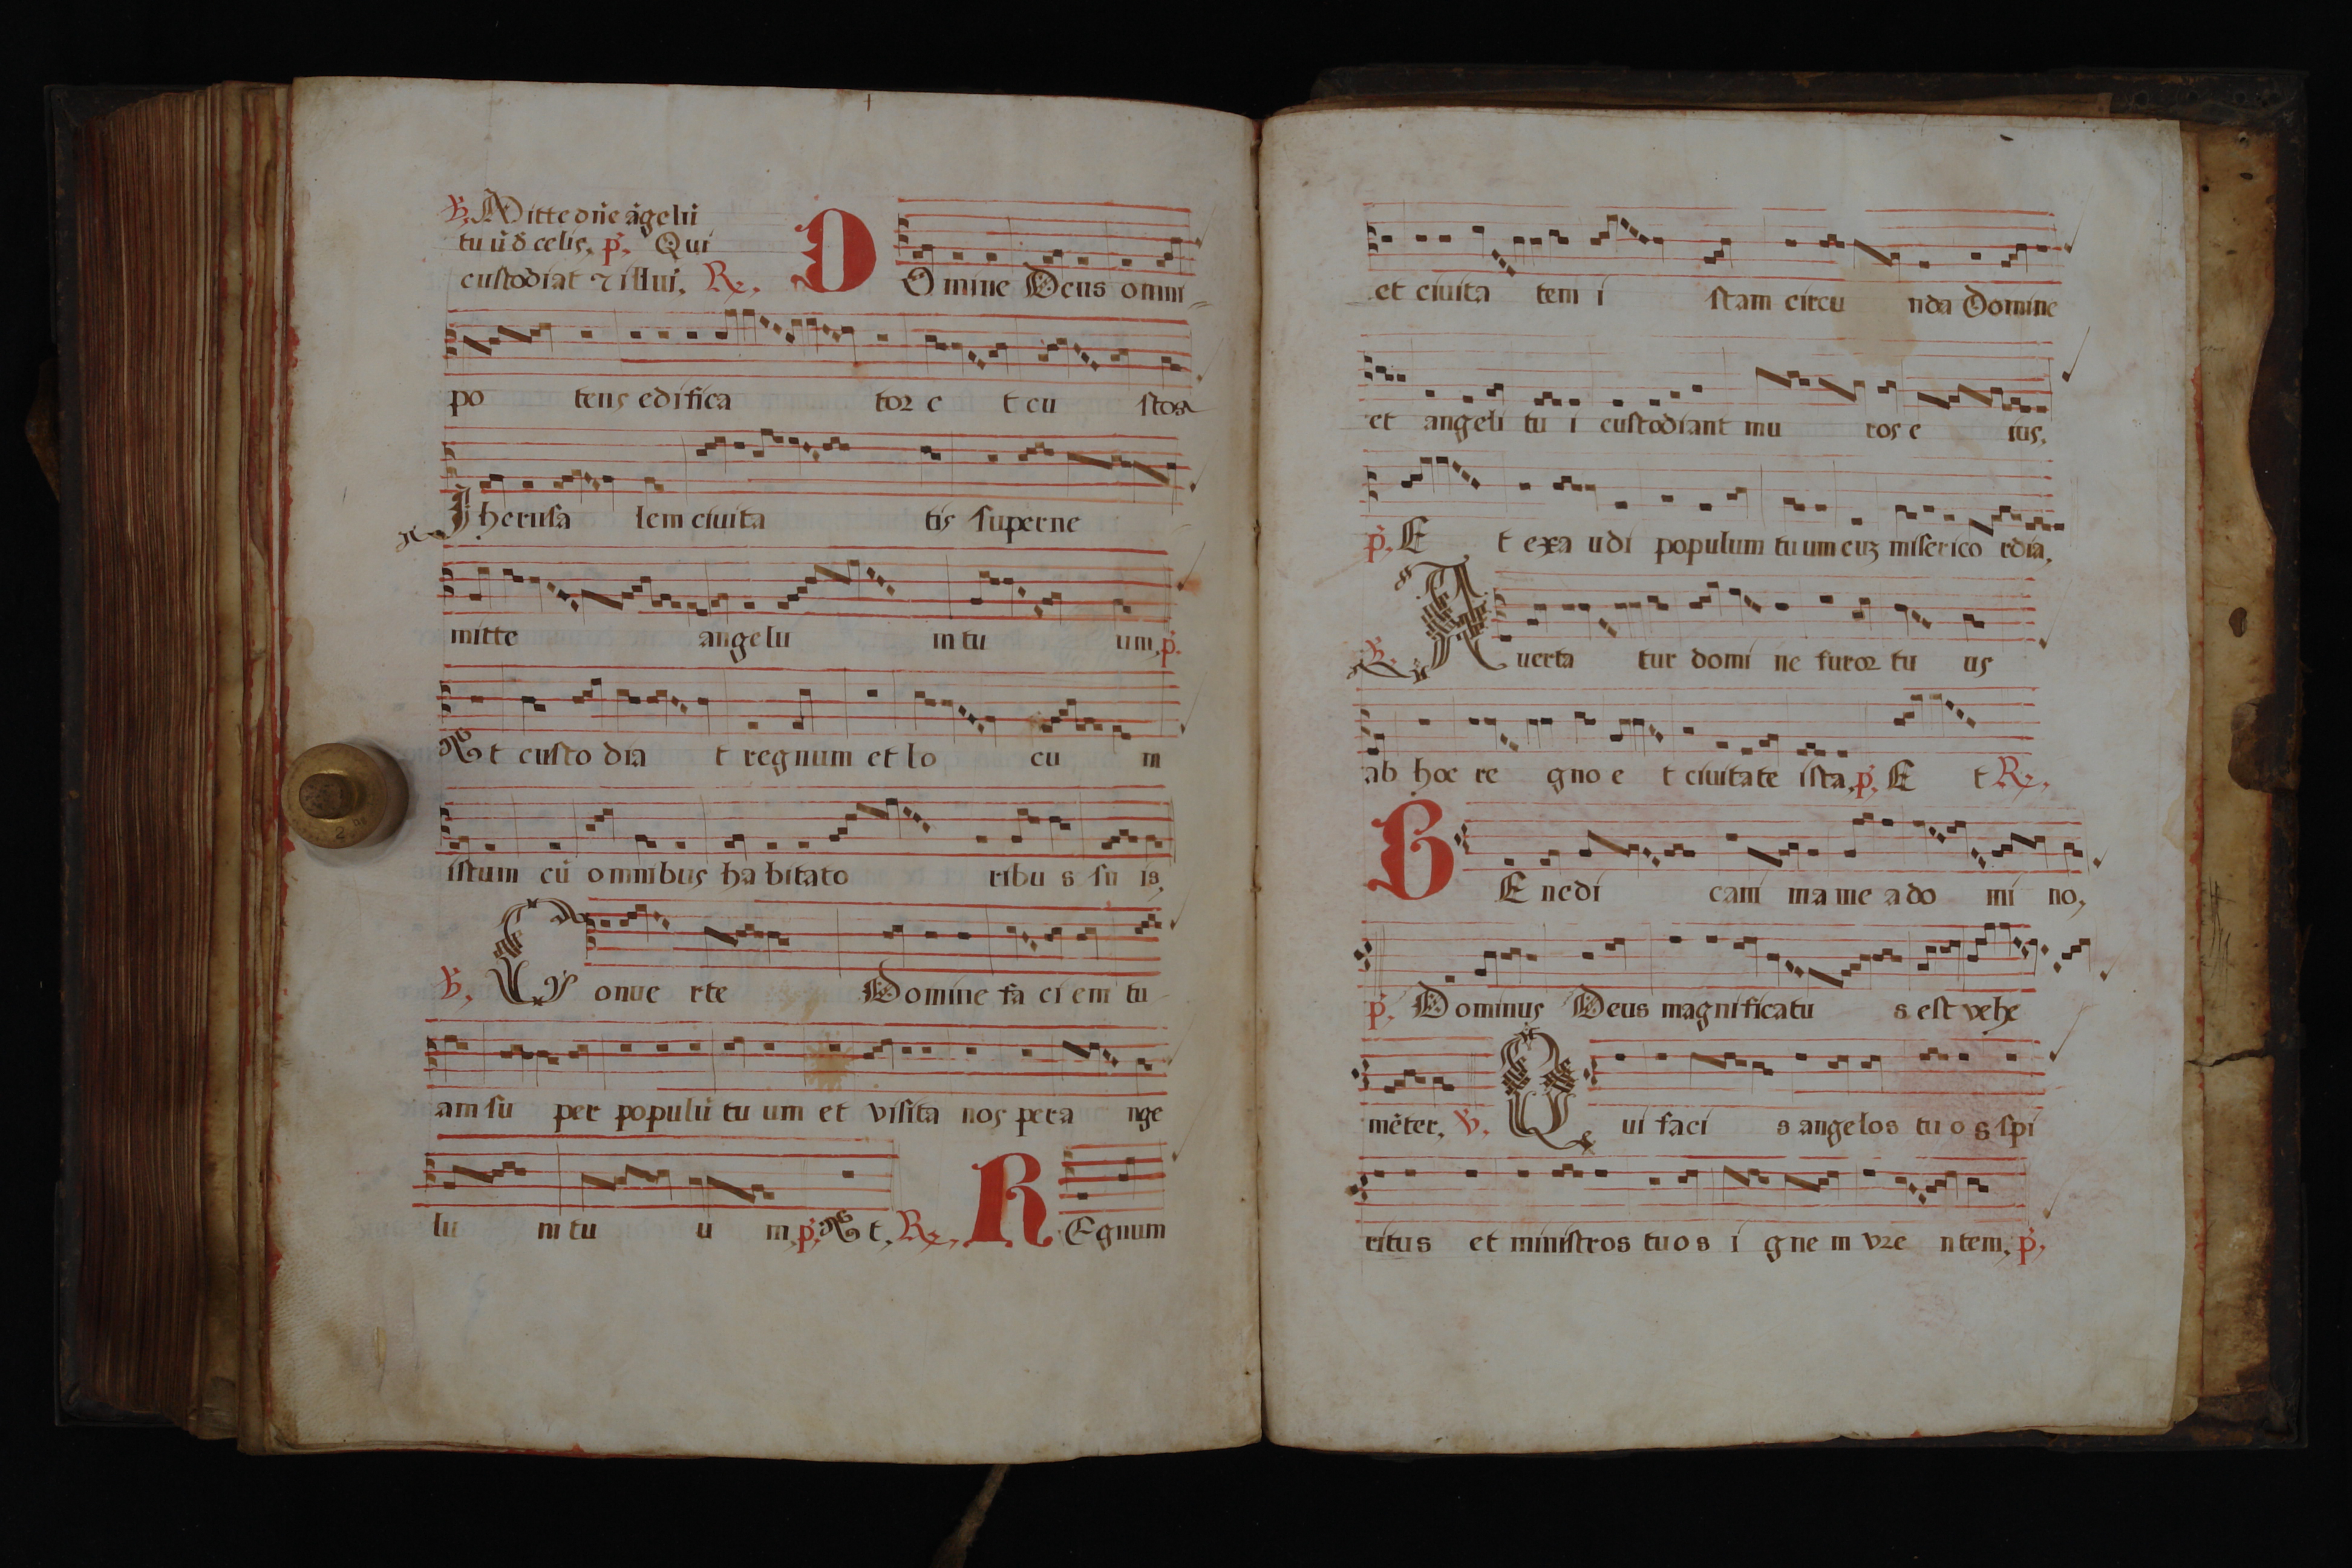 ℣. Mitte dn̄e āgelū
tuū d̄ celis. p̄. Qui
custodiat ⁊ illui. ℟.
DOmine Deus omni
po tens edifica tor e t cu stos
Jherusa lem civita tis superne
mitte angelu m tu um. p̄.
Et custo dia t regnum et lo cu m
istum cū omnibus ha bitato ribu s su is,
℣. Conve rte Domine fa ci em tu
am su per populū tu um et visita nos per a nge
lu m tu u m. p̄. Et. ℟. REgnum
et civita tem i stam circu nda Domine
et angeli tu i custodiant mu ros e ius.
p̄. E t exa udi populum tuum cuꝫ miserico rdia.
℣. Averta tur domi ne furor tu us
ab hoc re gno e t civitate ista. p̄. E t ℟.
BEnedi cam ma me a do mi no,
p̄. Dominus Deus magnificatu s est vehe
mēter. ℣. Qui faci s angelos tuos spi
ritus et ministros tuos i gne m vre ntem. p̄.